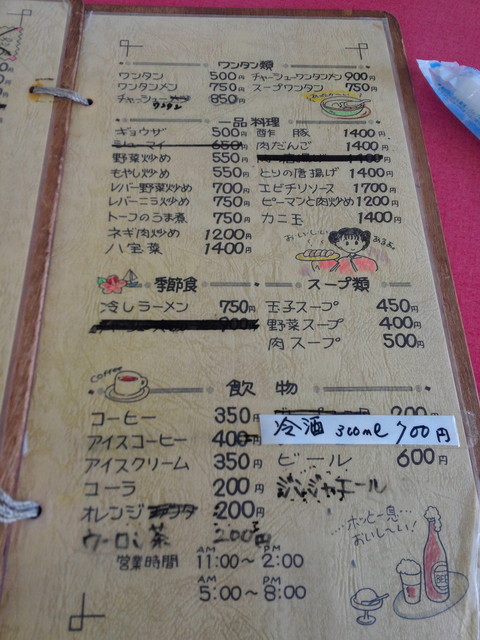 ワンタン類
ワンタン 500円 チャーシューワンタンメン 900円
ワンタンメン 750円 スープワンタン 750円
チャーシュー ワンタン 850円
一品料理
ギョウザ 500円 酢豚 1400円
シューマイ 650円 肉だんご 1400円
野菜炒め 550円
もやし炒め 550円 とりの唐揚げ 1400円
レバー野菜炒め 700円 エビチリソース 1700円
レバーニラ炒め 750円 ピーマンと肉炒め 1200円
トーフのうま煮 750円 カニ玉 1400円
ネギ肉炒め 1200円
八宝菜 1400円
おいしい
あるよ
季節食 スープ類
冷しラーメン 750円 玉子スープ 450円
野菜スープ 400円
肉スープ 500円
coffee
飲物
コーヒー 350円 200円
アイスコーヒー 400円 冷酒 300ml 700円
アイスクリーム 350円 ビール 600円
コーラ 200円 ジンジャエール
オレンジ 200円
ウーロン茶 200円
ホッと一息…
おいしーい!
営業時間 AM 11:00〜PM 2:00
AM 5:00〜PM 8:00